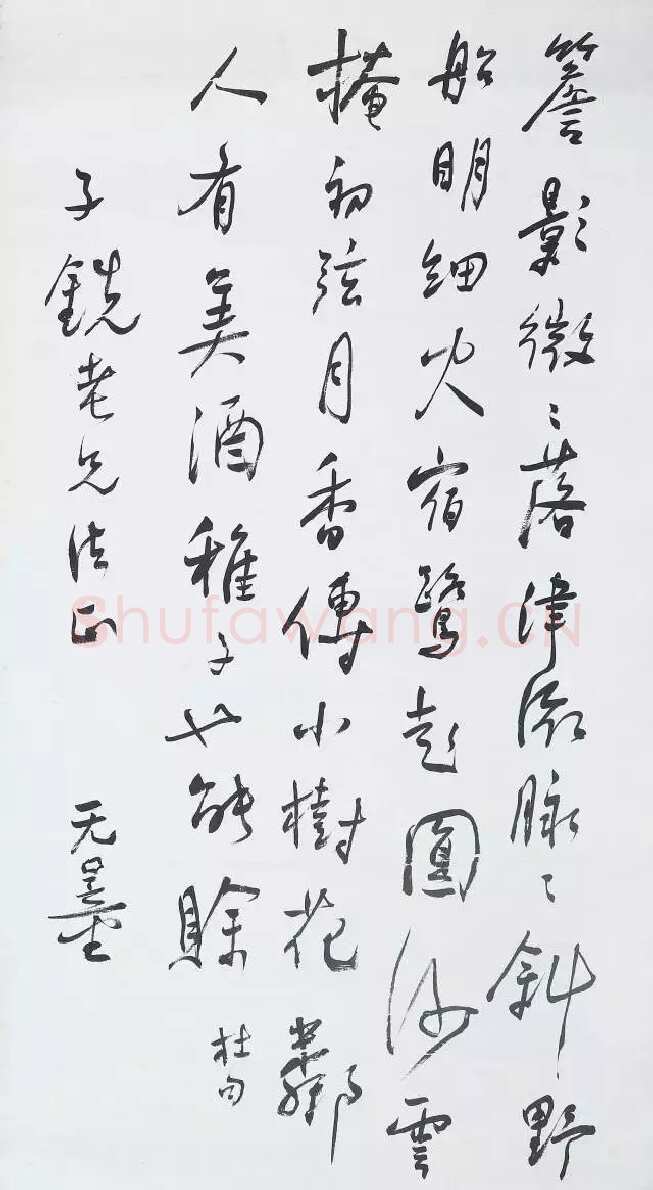 簷影微〻落津流脉〻斜野
船明細火宿鷺起圓沙雲
掩初弦月香傳小樹花鄰
人有美酒稚子也能賒 杜句
子銑老兄法正 无量
Shufawang.CN